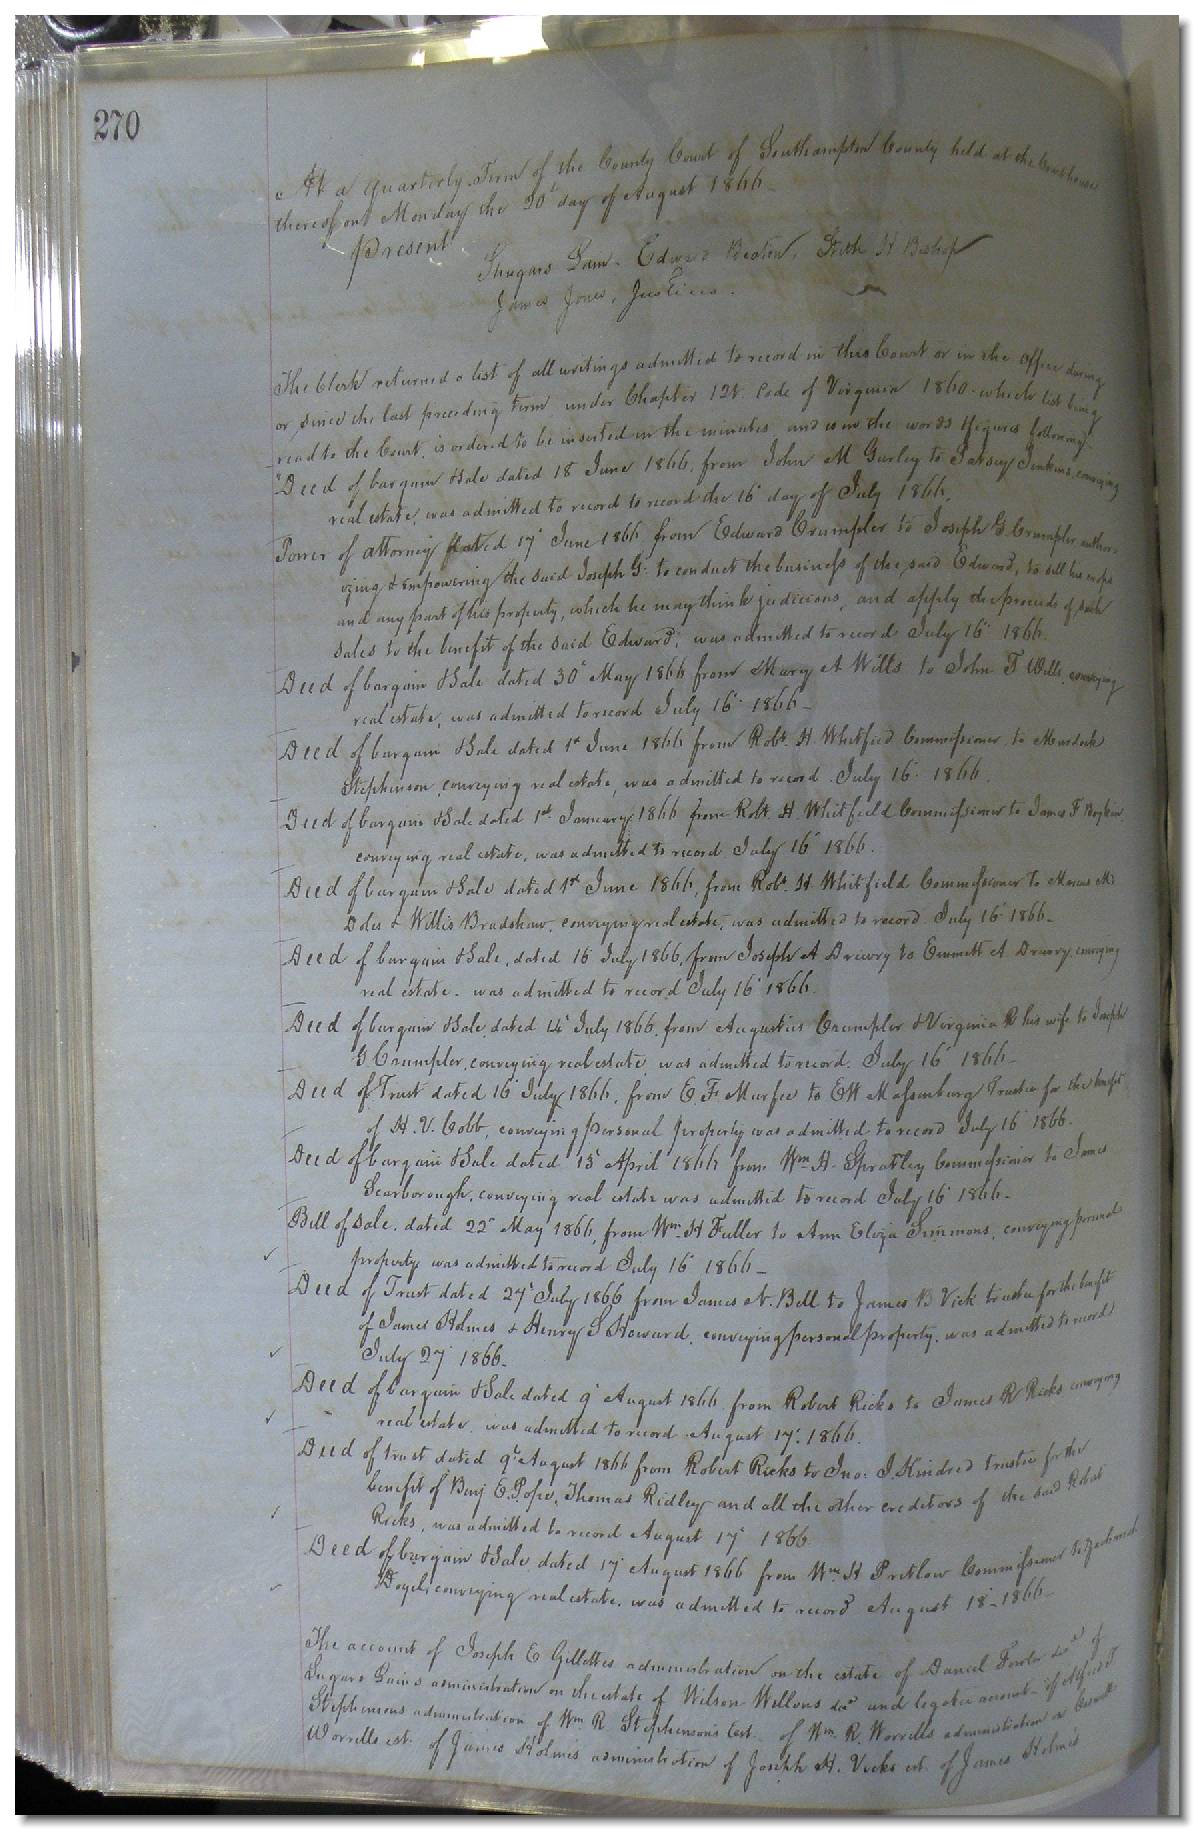 270
At a Quarterly Term of the County Court of Southampton County held at the Courthouse
thereof on Monday the 20th day of August 1866
Present
Shugars Lain Edward Beaton, Seth H Bishop
James Jones, Justices.
The Clerk returned a list of all writings admitted to record in this Court or in the Office during
or since the last preceding term under Chapter Code of Virginia 1860 which list being
read to the Court, is ordered to be inserted in the minutes and is in the words & figures following.
"Deed of bargain & Sale dated 18 June 1866, from John M Gurley to Jenkins, conveying
real estate, was admitted to record to record the 16 day of July 1866.
Power of attorney dated 17 June 1866 from Edward Crumpler to Joseph G. Crumpler author-
izing & empowering the said Joseph G. to conduct the business of the said Edward, to sell his crops
and any part of his property, which he may think judicious, and apply the proceeds of such
sales to the benefit of the said Edward, was admitted to record July 16 1866.
Deed of bargain & Sale dated 30 May 1866 from Mary A Wills to John T Wills conveying
real estate, was admitted to record July 16 1866-
Deed of bargain & Sale dated 1st June 1866 from Robt. H. Whitfied Commissioner to Murdock
Stephenson conveying real estate, was admitted to record July 16 1866.
Deed of bargain & Sale dated 1st Janueary 1866 from Robt. H. Whitfield Commissioner to James F Boykin
conveying real estate, was admitted to record July 16 1866.
Deed of bargain & Sale dated 1st June 1866, from Robt. H. Whitfield Commissioner to Marcus M
Doles & Willis Bradshaw, conveying real estate, was admitted to record July 16 1866-
Deed of bargain & Sale, dated 16 July 1866, from Joseph A Drewry to Emmett A Drewry, conveying
real estate. was admitted to record July 16 1866.
Deed of bargain & Sale dated 14 July 1866, from Augustus Crumpler & Virginia R his wife to Joseph
G Crumpler, conveying real estate, was admitted to record. July 16 1866-
Deed of Trust dated 16 July 1866, from E. F. Murfee to EW Massenburg Trustee for the benefit
of H. V. Cobb, conveying personal property was admitted to record July 16 1866.
Deed of bargain & Sale dated 15 April 1866 from Wm H. Spratley Commissioner to James
Scarborough, conveying real estate was admitted to record July 16 1866-
Bill of Sale. dated 22 May 1866, from Wm H Fuller to Ann Eliza Simmons, conveying personal
property was admitted to record July 16 1866-
Deed of Trust dated 27 July 1866 from James N. Bell to James B Vick trustee for the benefit
of James Holmes & Henry S Howard, conveying personal property, was admitted to record
July 27 1866-
Deed of bargain & Sale dated 9 August 1866 from Robert Ricks to James R Ricks conveying
real estate, was admitted to record August 17. 1866.
Deed of trust dated 9th August 1866 from Robert Ricks to Jno: J. Kindred trustee for the
benefit of Benj E. Pope, Thomas Ridley and all the other creditors of the said Robert
Ricks, was admitted to record August 17 1866
Deed of bargain & Sale dated 17 August 1866 from Wm H Pretlow Commissioner to
conveying real estate. was admitted to record August 18 1866-
The account of Joseph E Gillettes administration on the estate of Daniel Fowler decd of
Sugars Lains administration on the estate of Wilson Wellons decd and legatee account of Alfred T
Stephensons administration of Wm R Stephensons est. of Wm R. Worrells administration on
Worrells est. of James Holmes administration of Joseph H. Vicks est. of James Holmes